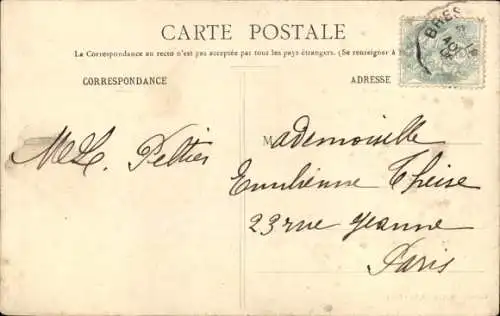 CARTE POSTALE
La Correspondance au recto n'est pas acceptée par tous les pays étrangers. (Se renseigner à
CORRESPONDANCE
ADRESSE
BRES
Mademoiselle
Peltier
Emilienne Theise
23 rue Jeanne
Paris